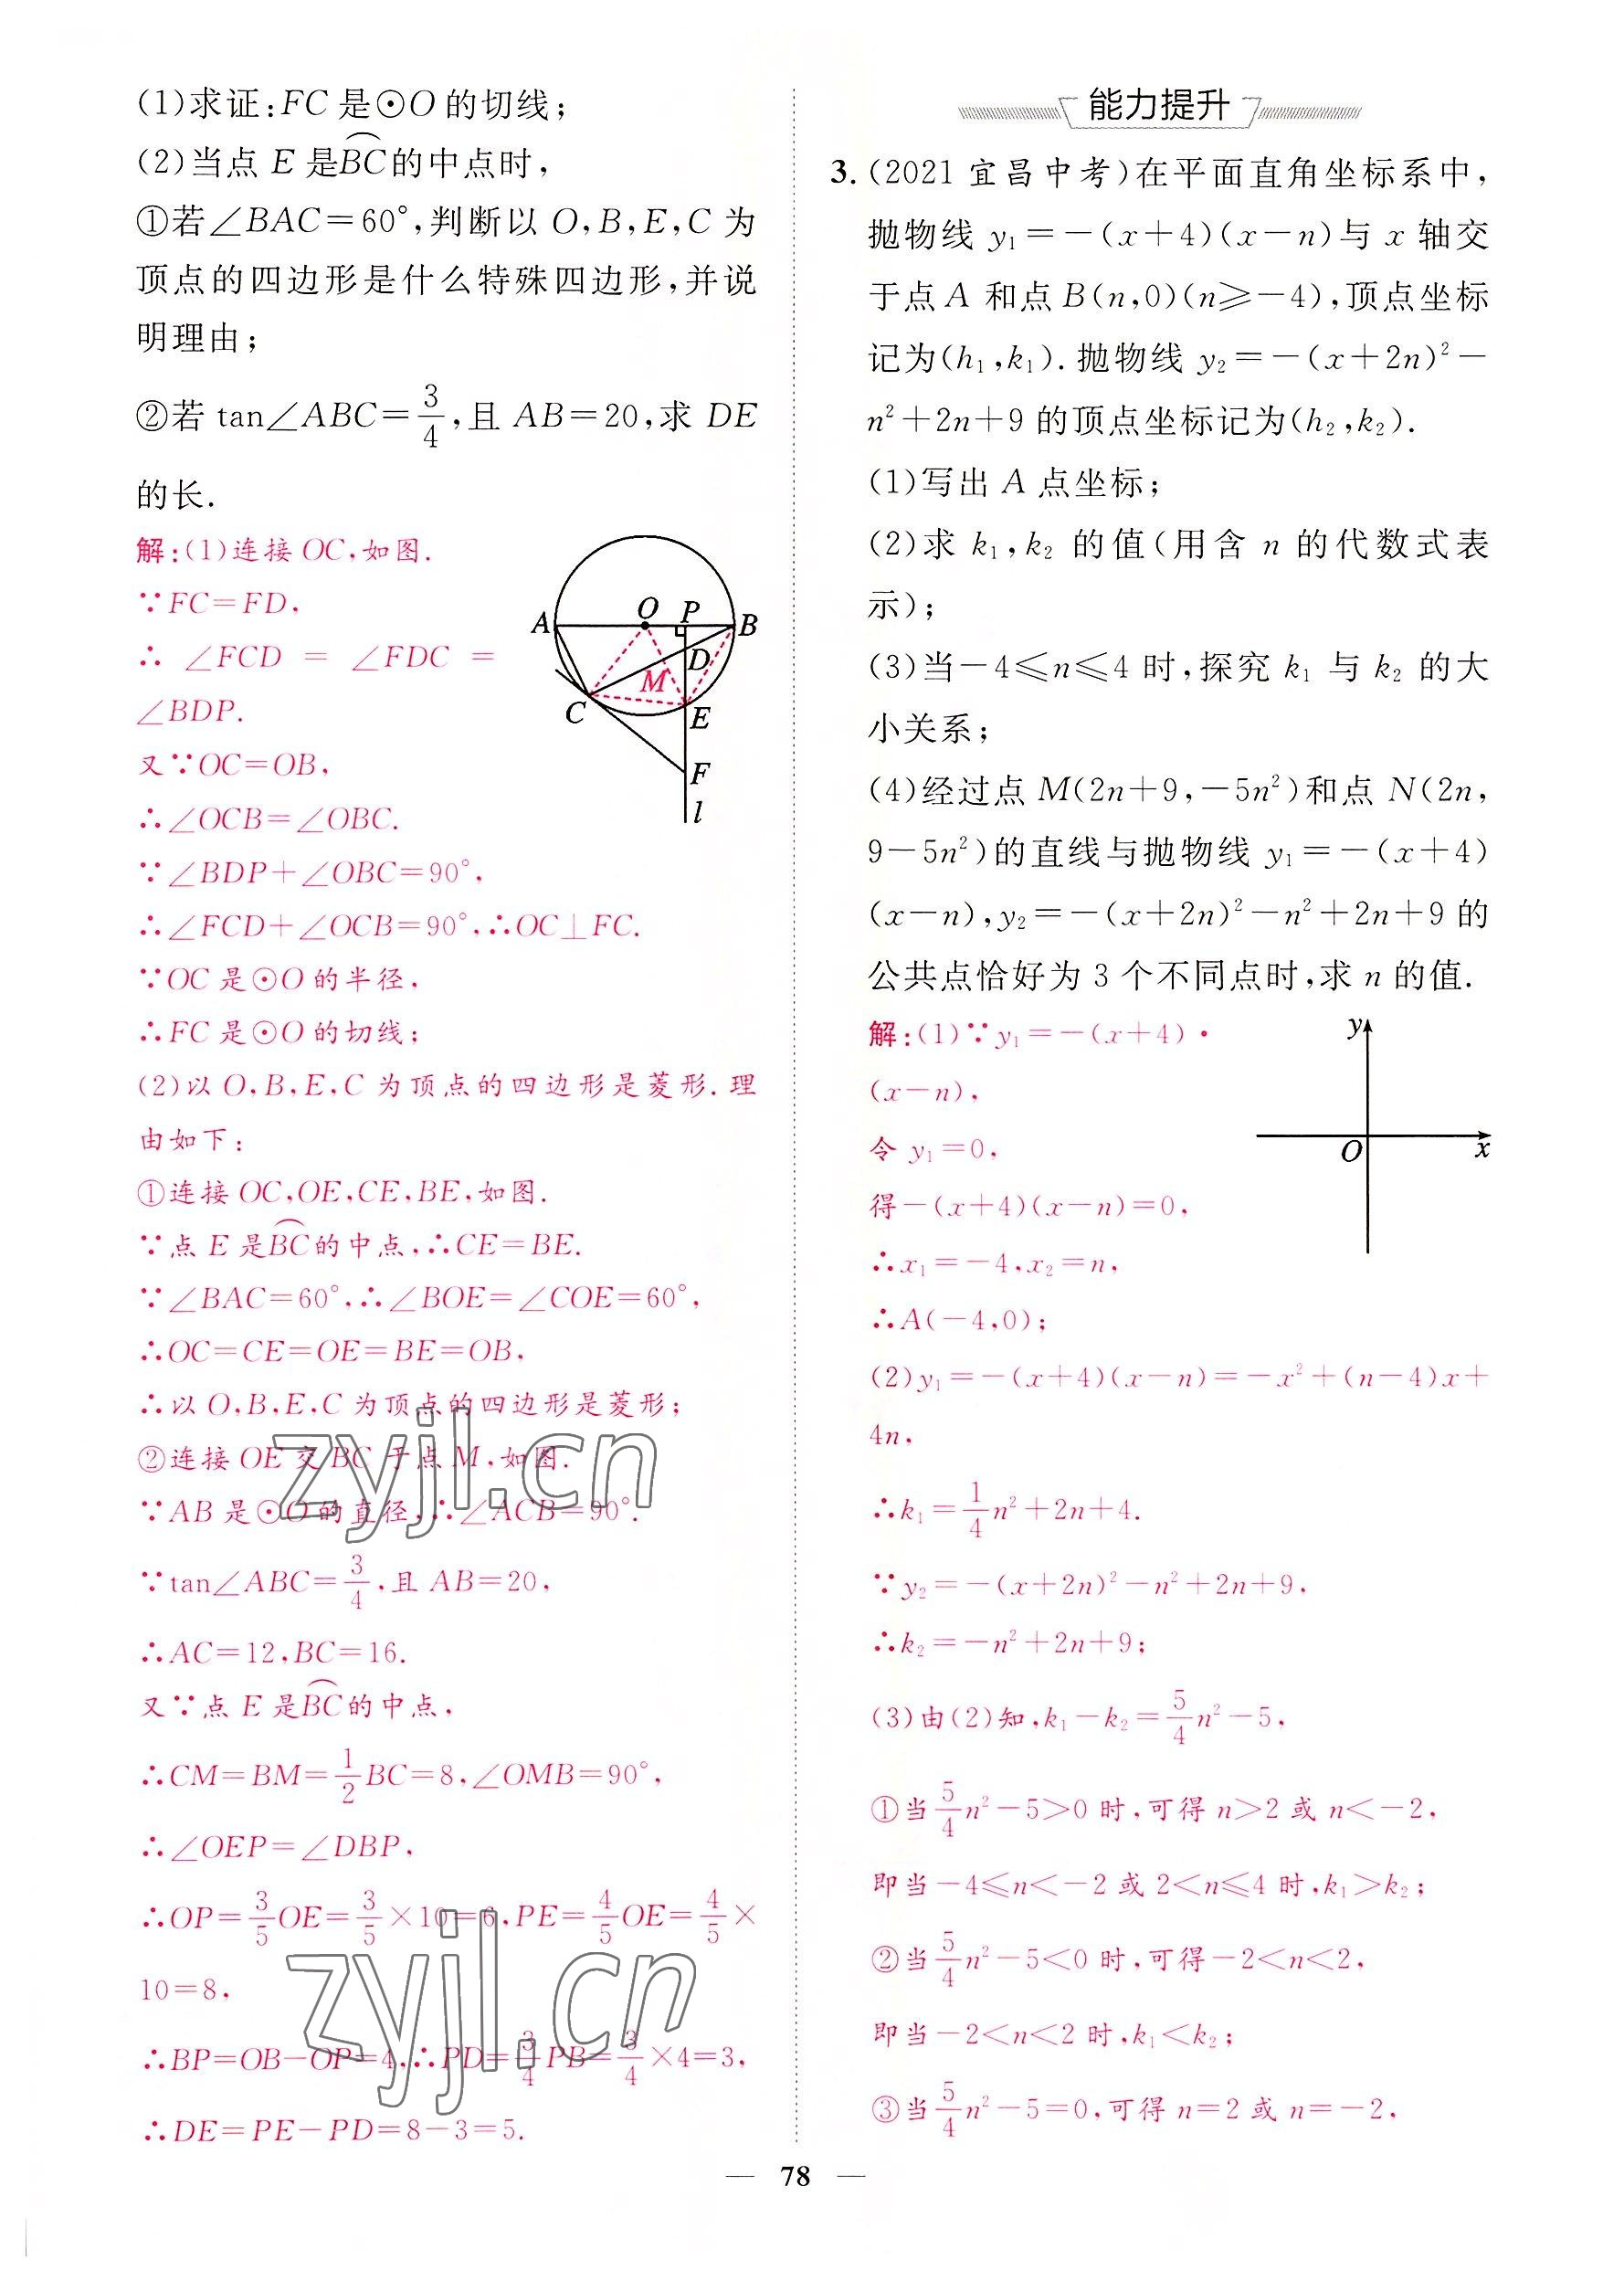 (1)求证:FC 是⊙O 的切线;
(2)当点 E 是B͡C的中点时,
①若∠BAC=60°,判断以 O,B,E,C 为
顶点的四边形是什么特殊四边形,并说
明理由;
②若 tan∠ABC=3/4,且 AB=20,求 DE
的长.
解:(1)连接 OC,如图.
∵FC=FD,
∴ ∠FCD = ∠FDC =
∠BDP.
又∵OC=OB,
∴∠OCB=∠OBC.
∵∠BDP+∠OBC=90°,
∴∠FCD+∠OCB=90°,∴OC⊥FC.
∵OC 是⊙O 的半径,
∴FC 是⊙O 的切线;
(2)以 O,B,E,C 为顶点的四边形是菱形.理
由如下:
①连接 OC,OE,CE,BE,如图.
∵点 E 是B͡C的中点,∴CE=BE.
∵∠BAC=60°,∴∠BOE=∠COE=60°,
∴OC=CE=OE=BE=OB,
∴以 O,B,E,C 为顶点的四边形是菱形;
②连接 OE 交 BC 于点 M,如图.
∵AB 是⊙O 的直径,∴∠ACB=90°.
∵tan∠ABC=3/4,且 AB=20,
∴AC=12,BC=16.
又∵点 E 是B͡C的中点,
∴CM=BM=1/2BC=8,∠OMB=90°,
∴∠OEP=∠DBP,
∴OP=3/5OE=3/5×10=6,PE=4/5OE=4/5×
10=8,
∴BP=OB−OP=4,∴PD=3/4PB=3/4×4=3,
∴DE=PE−PD=8−3=5.
A
O
P
B
D
M
C
E
F
l
能力提升
3.(2021 宜昌中考)在平面直角坐标系中,
抛物线 y₁=−(x+4)(x−n)与 x 轴交
于点 A 和点 B(n,0)(n≥−4),顶点坐标
记为(h₁,k₁).抛物线 y₂=−(x+2n)²−
n²+2n+9 的顶点坐标记为(h₂,k₂).
(1)写出 A 点坐标;
(2)求 k₁,k₂ 的值(用含 n 的代数式表
示);
(3)当−4≤n≤4 时,探究 k₁ 与 k₂ 的大
小关系;
(4)经过点 M(2n+9,−5n²)和点 N(2n,
9−5n²)的直线与抛物线 y₁=−(x+4)
(x−n),y₂=−(x+2n)²−n²+2n+9 的
公共点恰好为 3 个不同点时,求 n 的值.
解:(1)∵y₁=−(x+4)·
(x−n),
令 y₁=0,
得−(x+4)(x−n)=0,
∴x₁=−4,x₂=n,
∴A(−4,0);
y
O
x
(2)y₁=−(x+4)(x−n)=−x²+(n−4)x+
4n,
∴k₁=1/4n²+2n+4.
∵y₂=−(x+2n)²−n²+2n+9,
∴k₂=−n²+2n+9;
(3)由(2)知,k₁−k₂=5/4n²−5,
①当5/4n²−5>0 时,可得 n>2 或 n<−2,
即当−4≤n<−2 或 2<n≤4 时,k₁>k₂;
②当5/4n²−5<0 时,可得−2<n<2,
即当−2<n<2 时,k₁<k₂;
③当5/4n²−5=0,可得 n=2 或 n=−2,
zyjl.cn
zyjl.cn
— 78 —